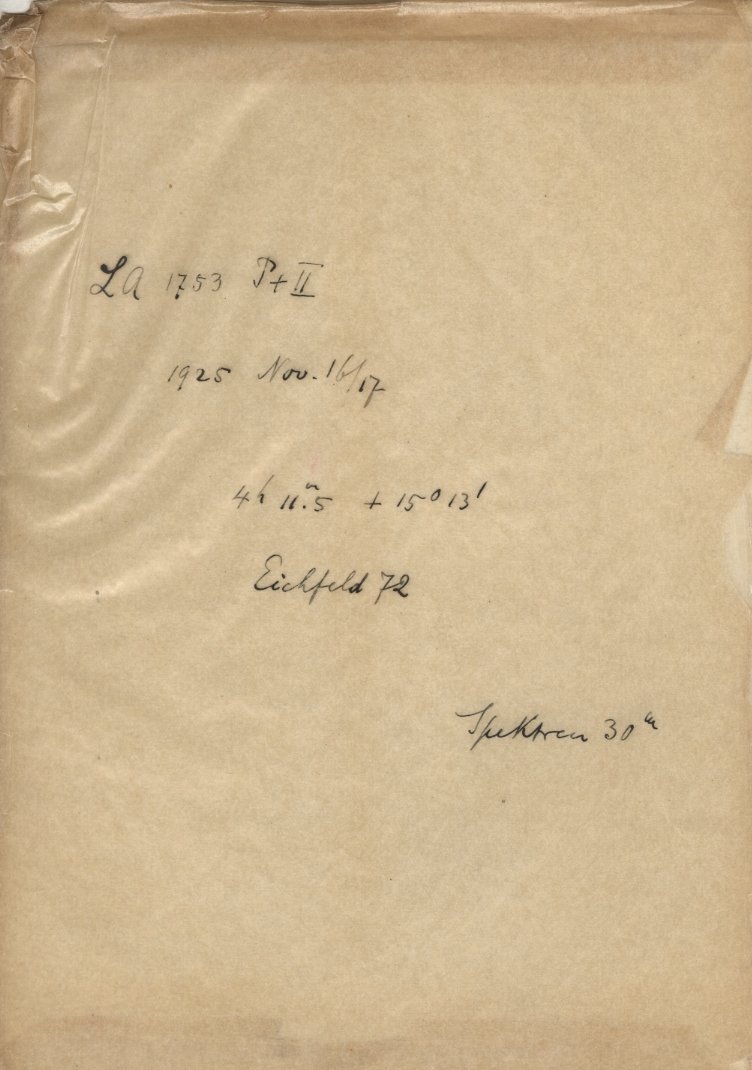 LA 1753 P + II
1925 Nov. 16/17
4h 11m.5 + 15° 13'
Eichfeld 72
Spektren 30m